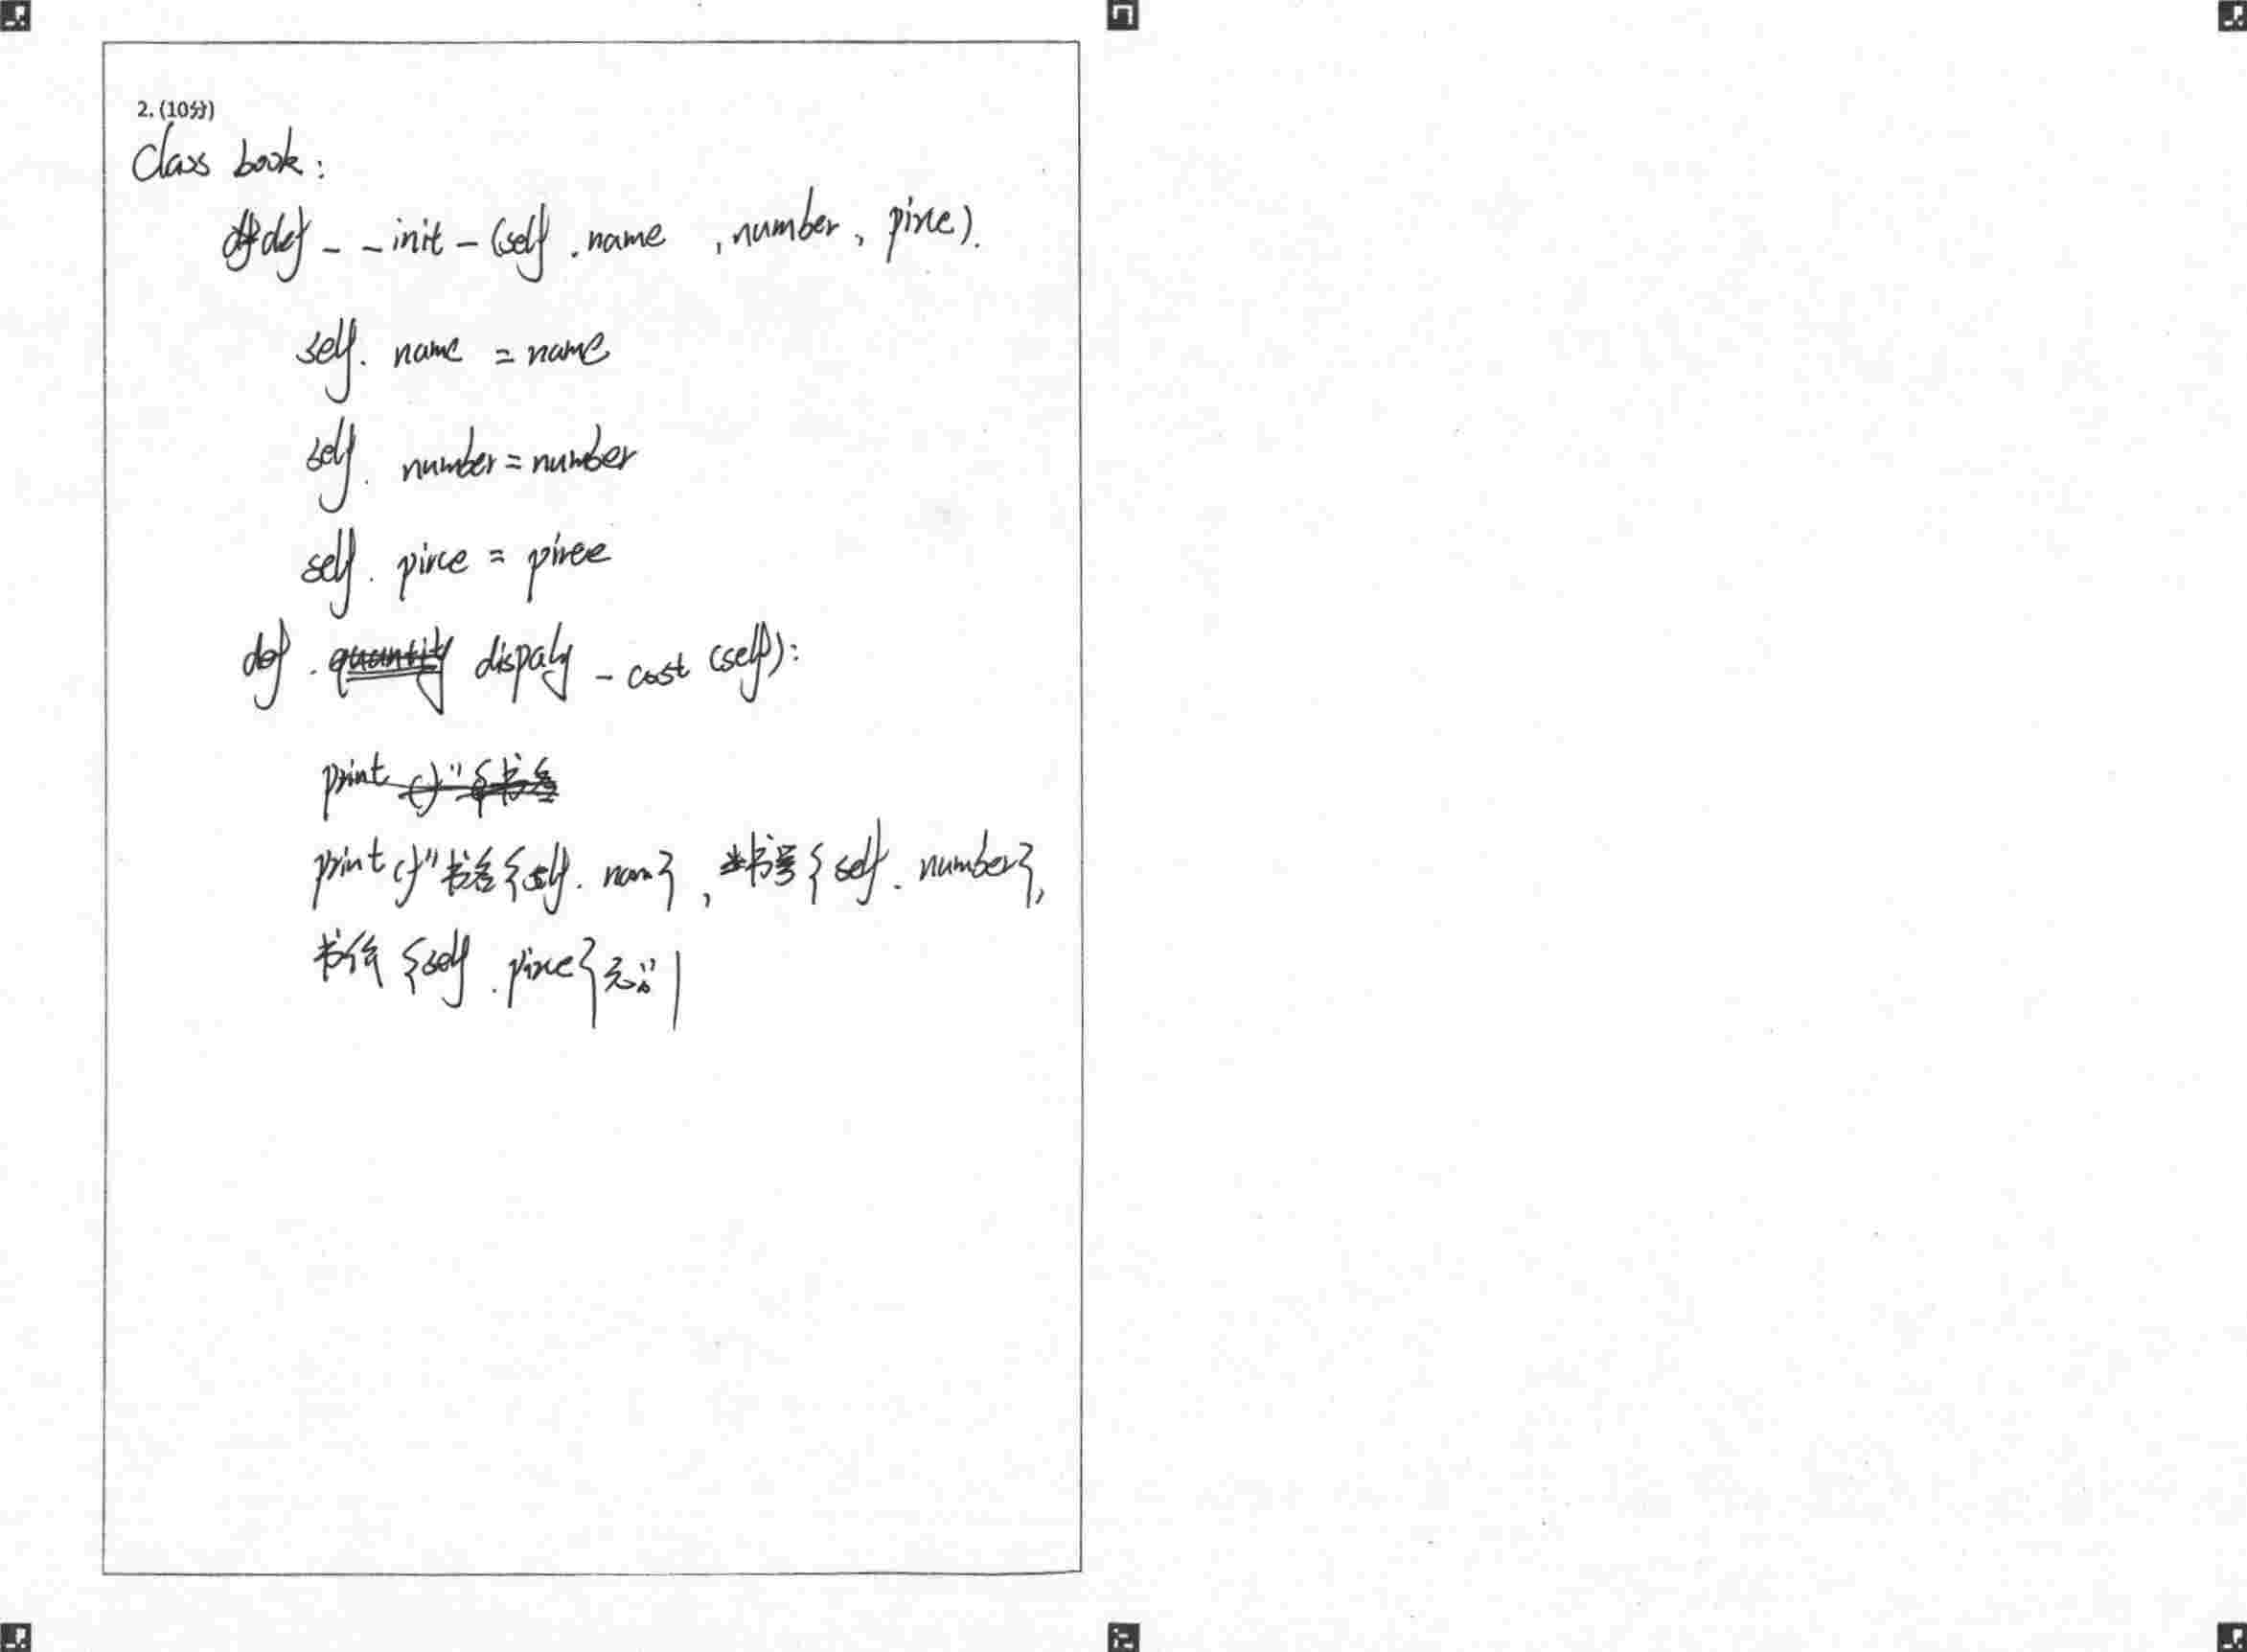 2. (10分)
Class book:
def - - init - (self . name , number, pirce).
self. name = name
self. number = number
self. pirce = piree
def . quantity dispaly - cost (self):
print () " {书名
print (f" 书名 {self. nam}, 书号 { self . number},
书价 {self . pirce} 元 " )